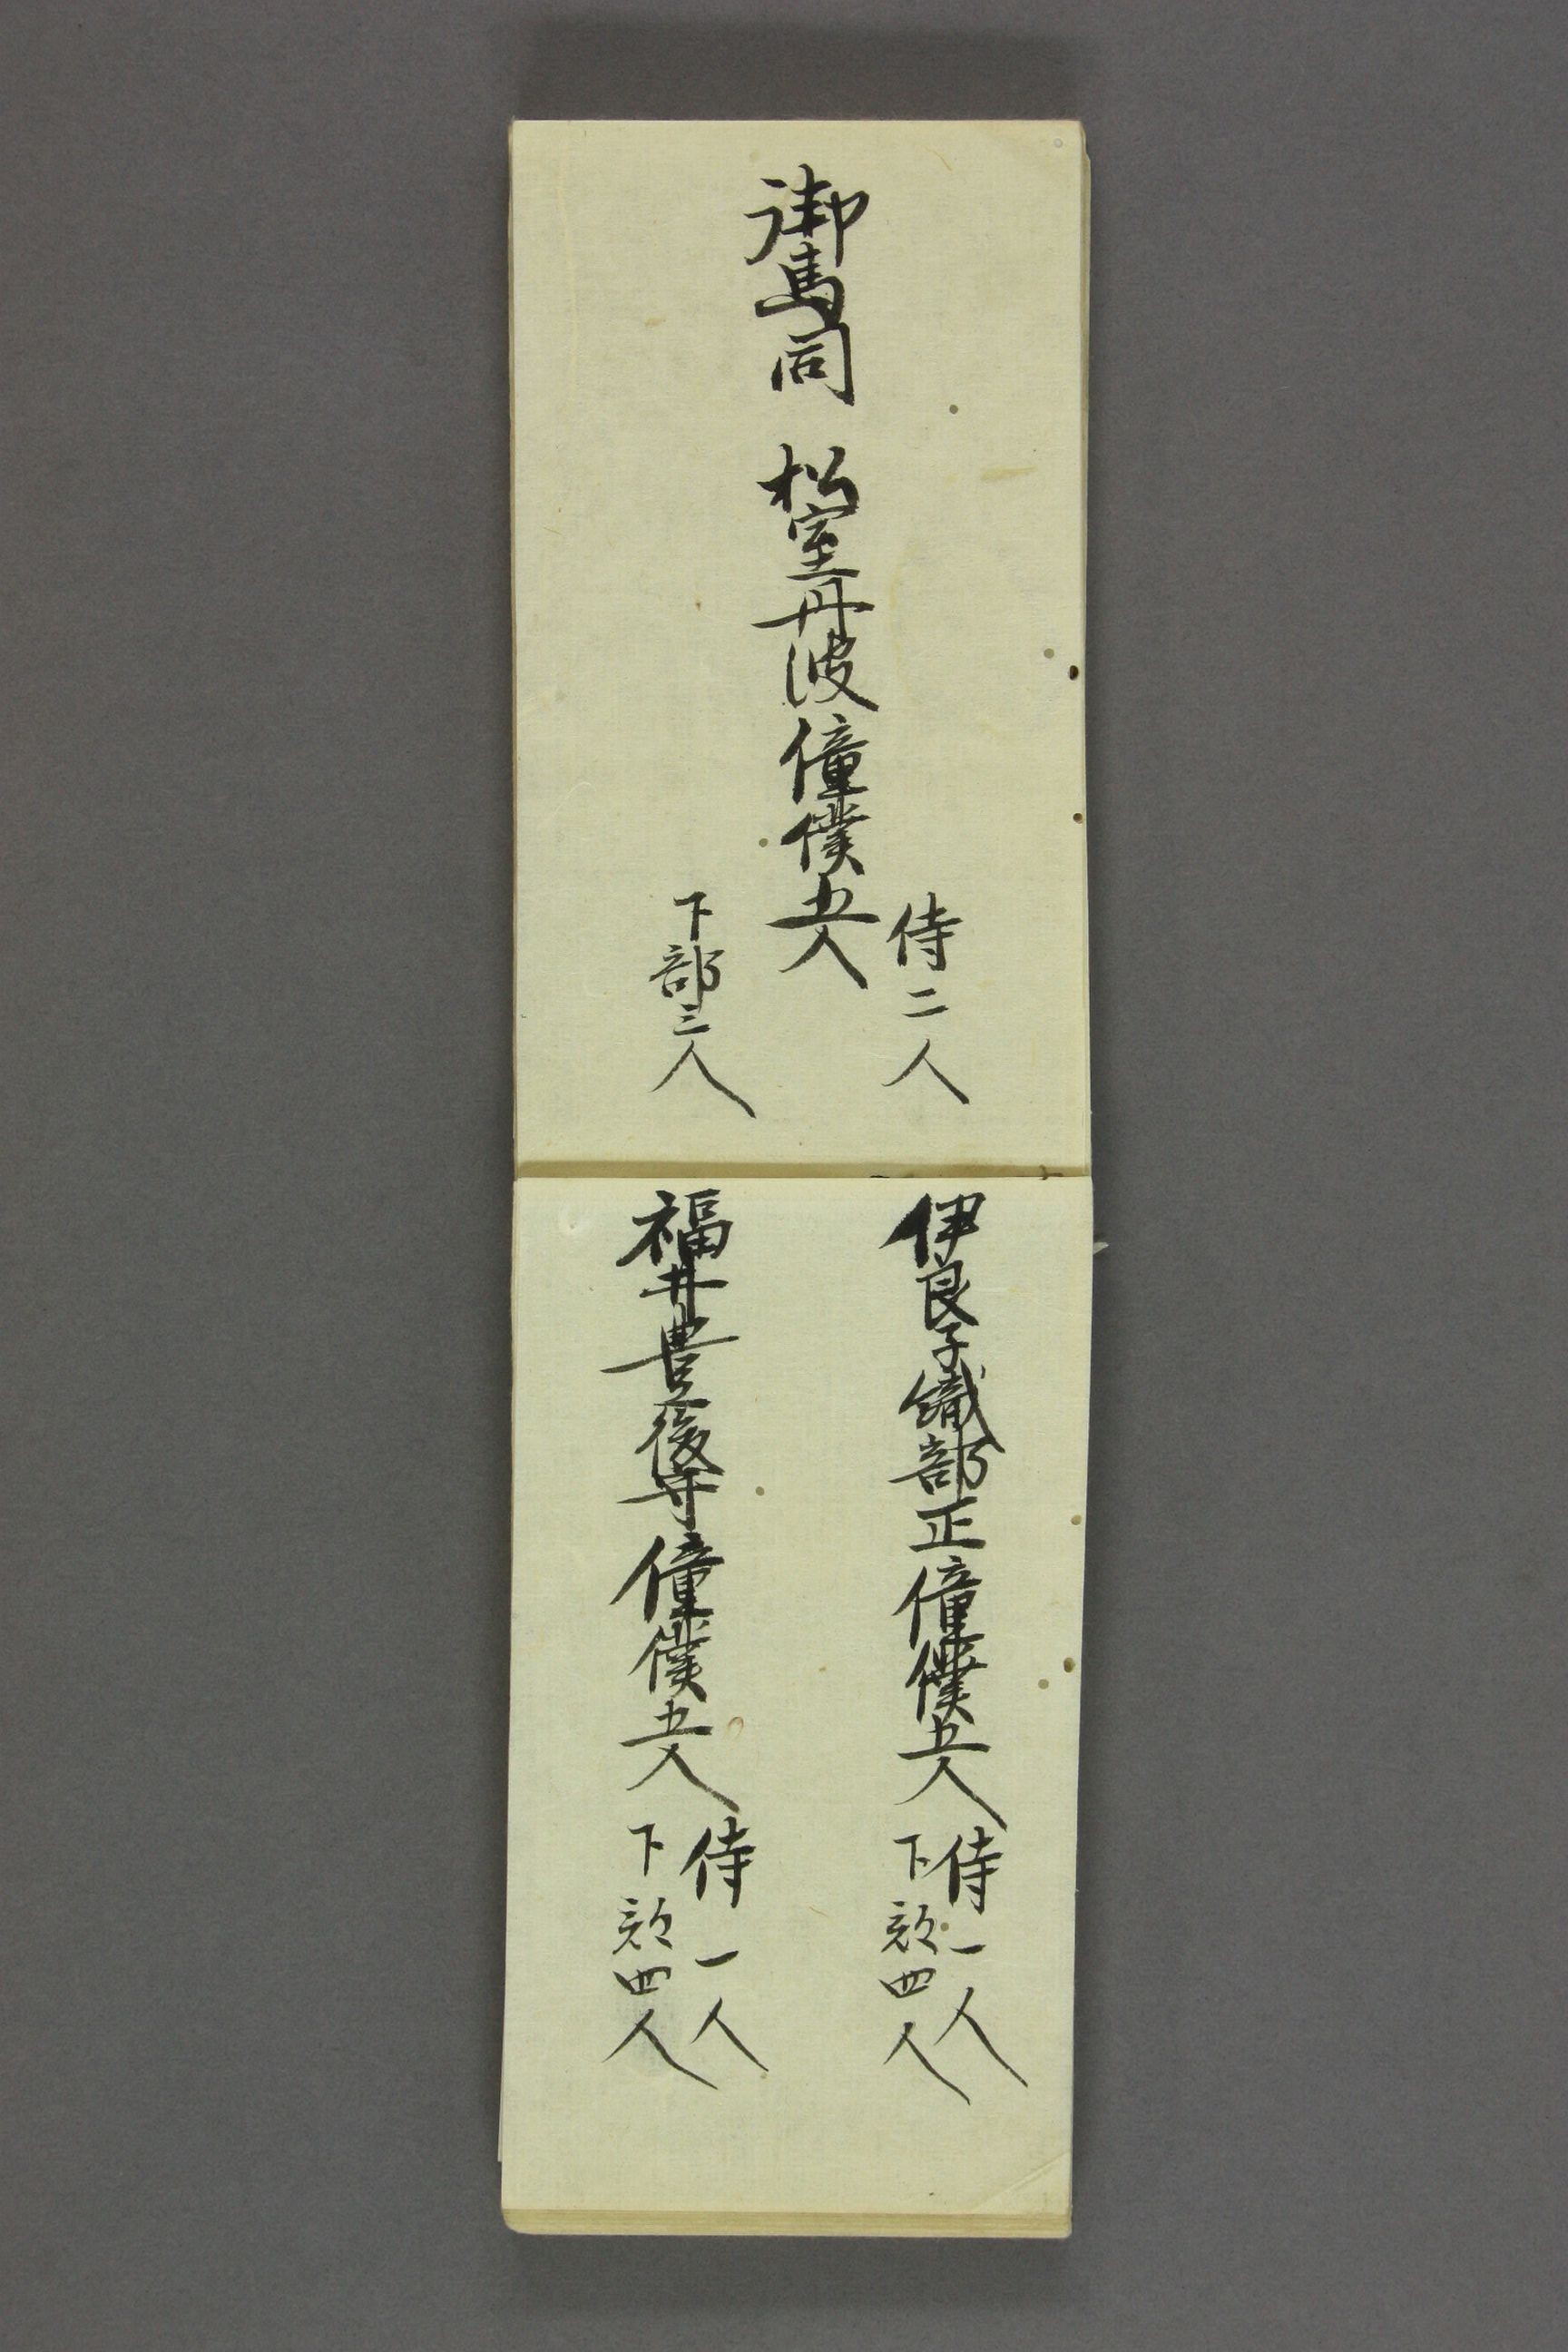 御馬同　松室丹波僮僕五人
侍二人
下部三人
伊良子織部正僮僕五人
侍一人
下部四人
福井豊後守僮僕五人
侍一人
下部四人